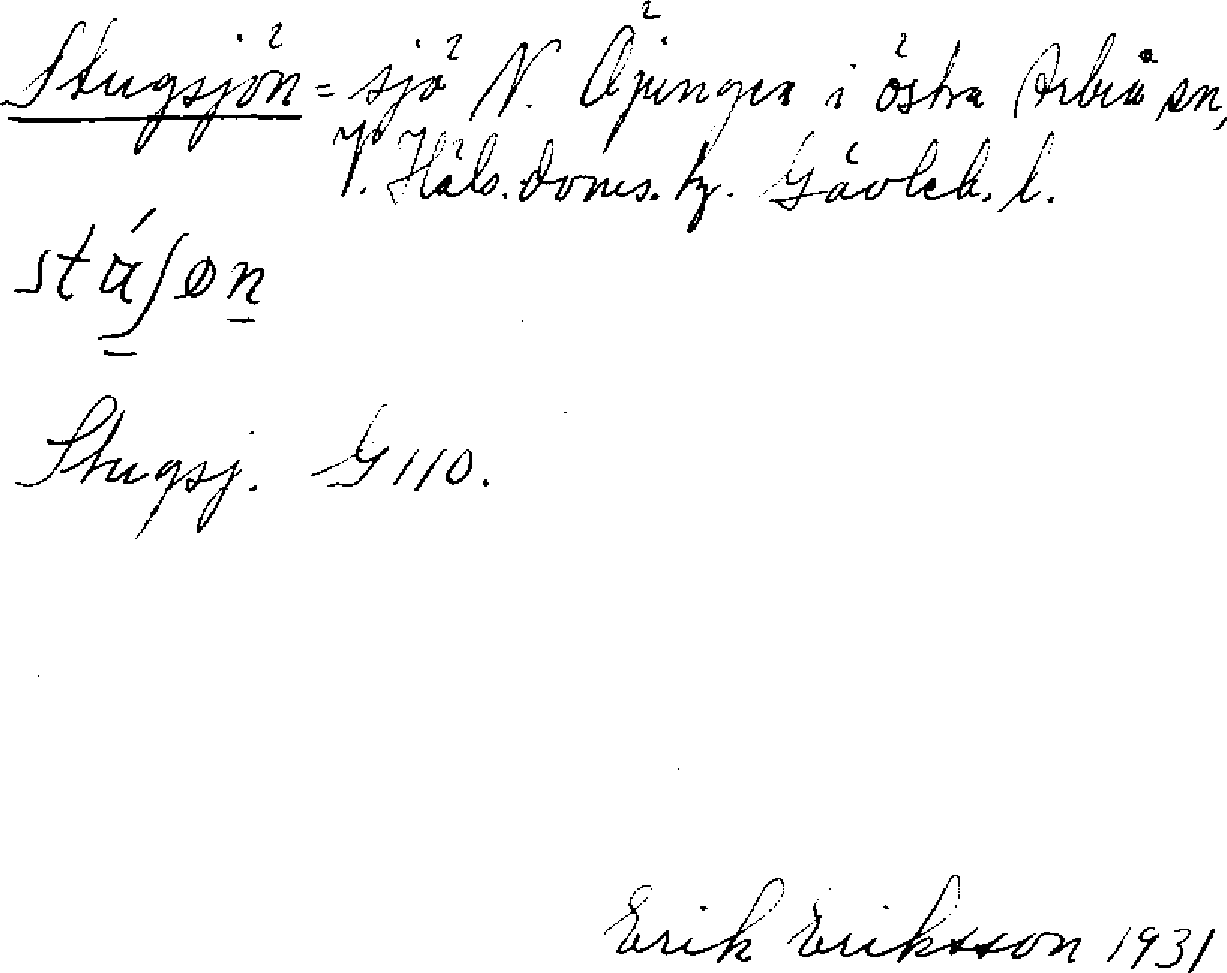 Stugsjön = sjö N. Öjungen i östra Arbrå sn,
V. Häls. doms. hg. Gävleb. l.
Stugsj. G 110.
Erik Eriksson 1931